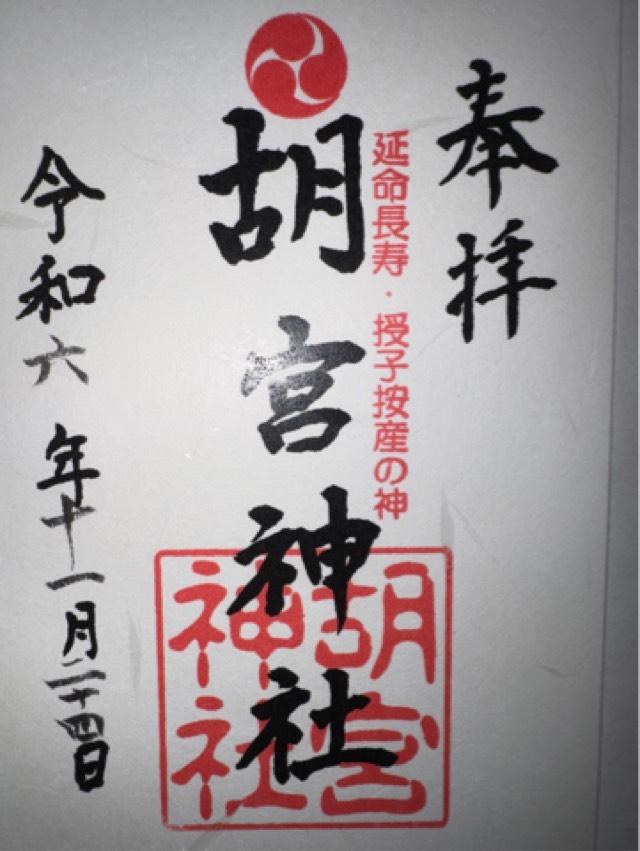 奉拝
延命長寿・授子按産の神
胡宮神社
胡宮
神社
令和六年十一月二十四日